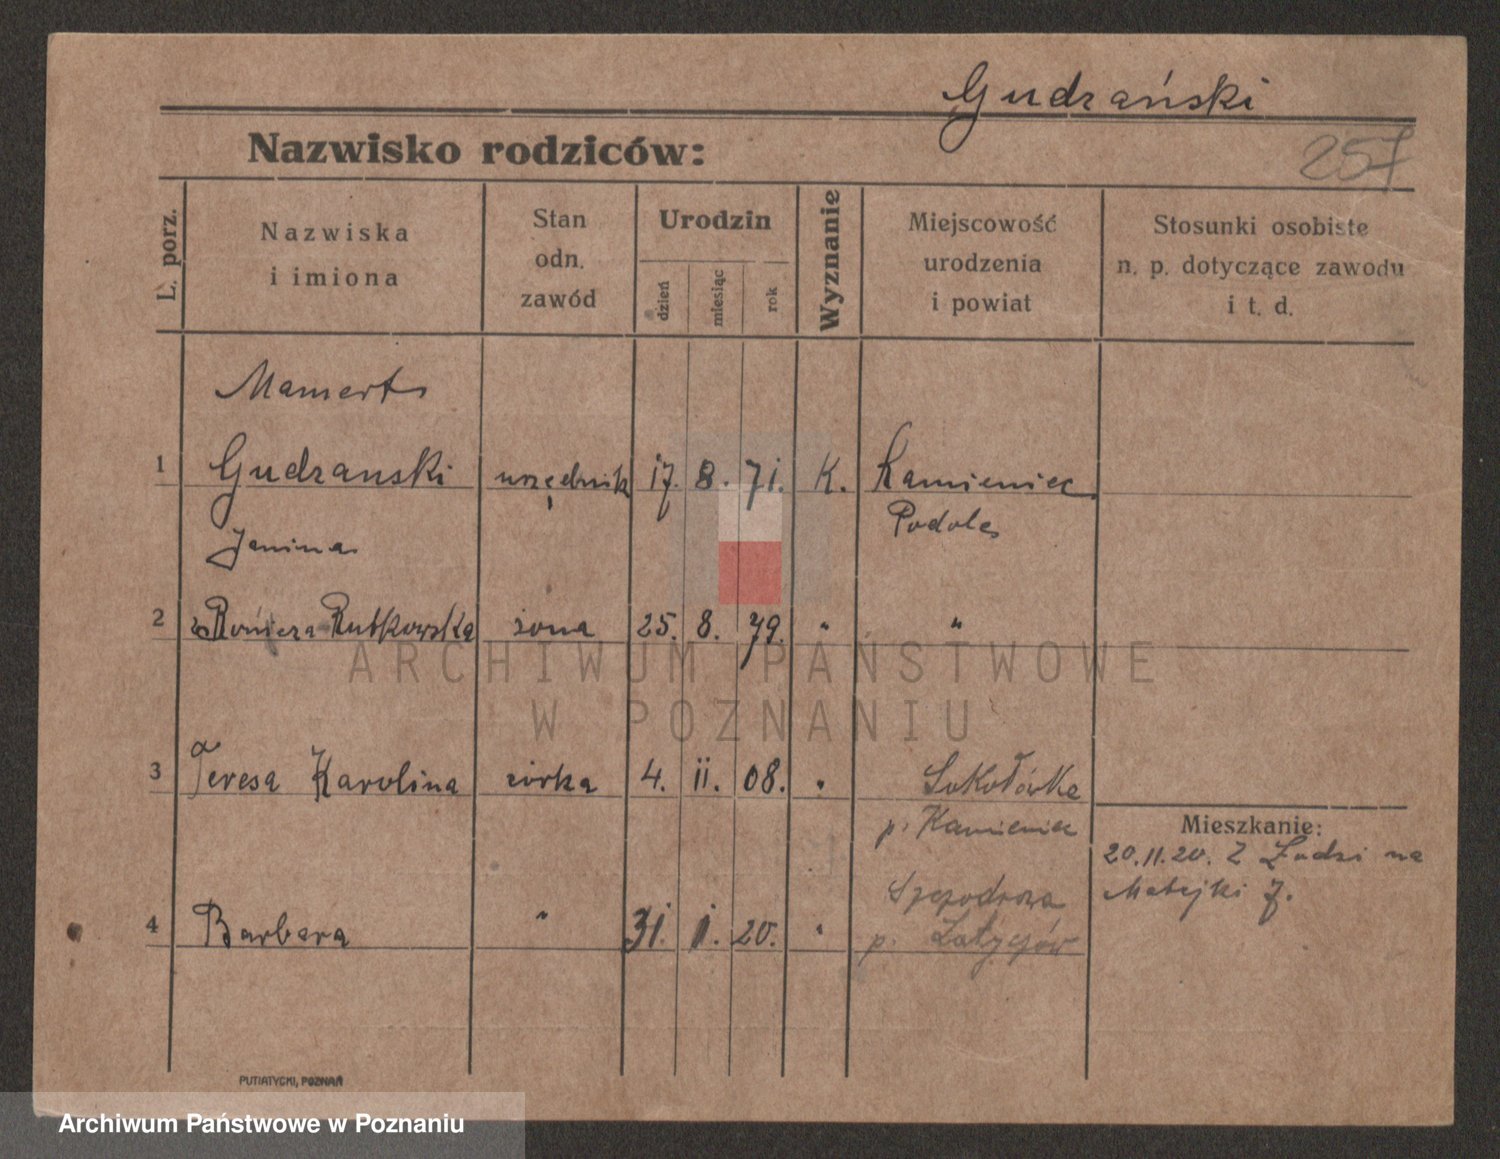 Gudrański
257
Nazwisko rodziców:
L. porz.
Nazwiska
i imiona
Stan
odn.
zawód
Urodzin
dzień
miesiąc
rok
Wyznanie
Miejscowość
urodzenia
i powiat
Stosunki osobiste
n. p. dotyczące zawodu
i t. d.
Mamert
1 Gudranski urzędnik 17. 8. 71. K. Kamieniec
Podole
Janina
2 Rutkowska żona 25. 8. 79. " "
3 Teresa Karolina córka 4. II. 08. " Sokołówka
p. Kamieniec
Mieszkanie:
20.11.20. Z Łodzi na
Matejki 7.
4 Barbara " 31. I. 20. "
p.
PUTIATYCKI, POZNAŃ
ARCHIWUM PAŃSTWOWE
W POZNANIU
Archiwum Państwowe w Poznaniu